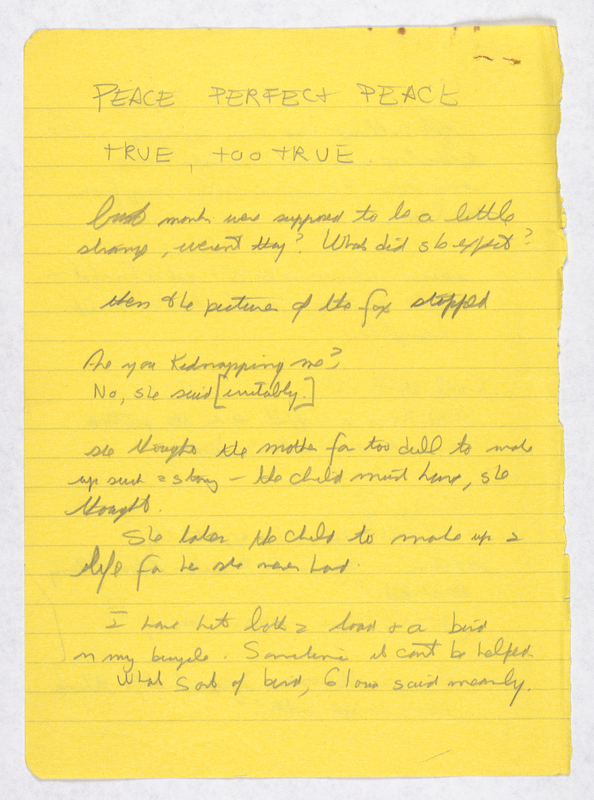 PEACE PERFECT PEACE
TRUE, too TRUE.
but monks were supposed to be a little
strange, weren't they? What did she expect?
then the pictures of the fox stopped
Are you Kidnapping me?
No, she said [irritably.]
she thought the mother far too dull to make
up such a story – the child must have, she
thought.
She takes the child to make up a
life for her she never had.
I have hit both a toad & a bird
on my bicycle. Sometimes it can't be helped
What sort of bird, Gloria said meanly.